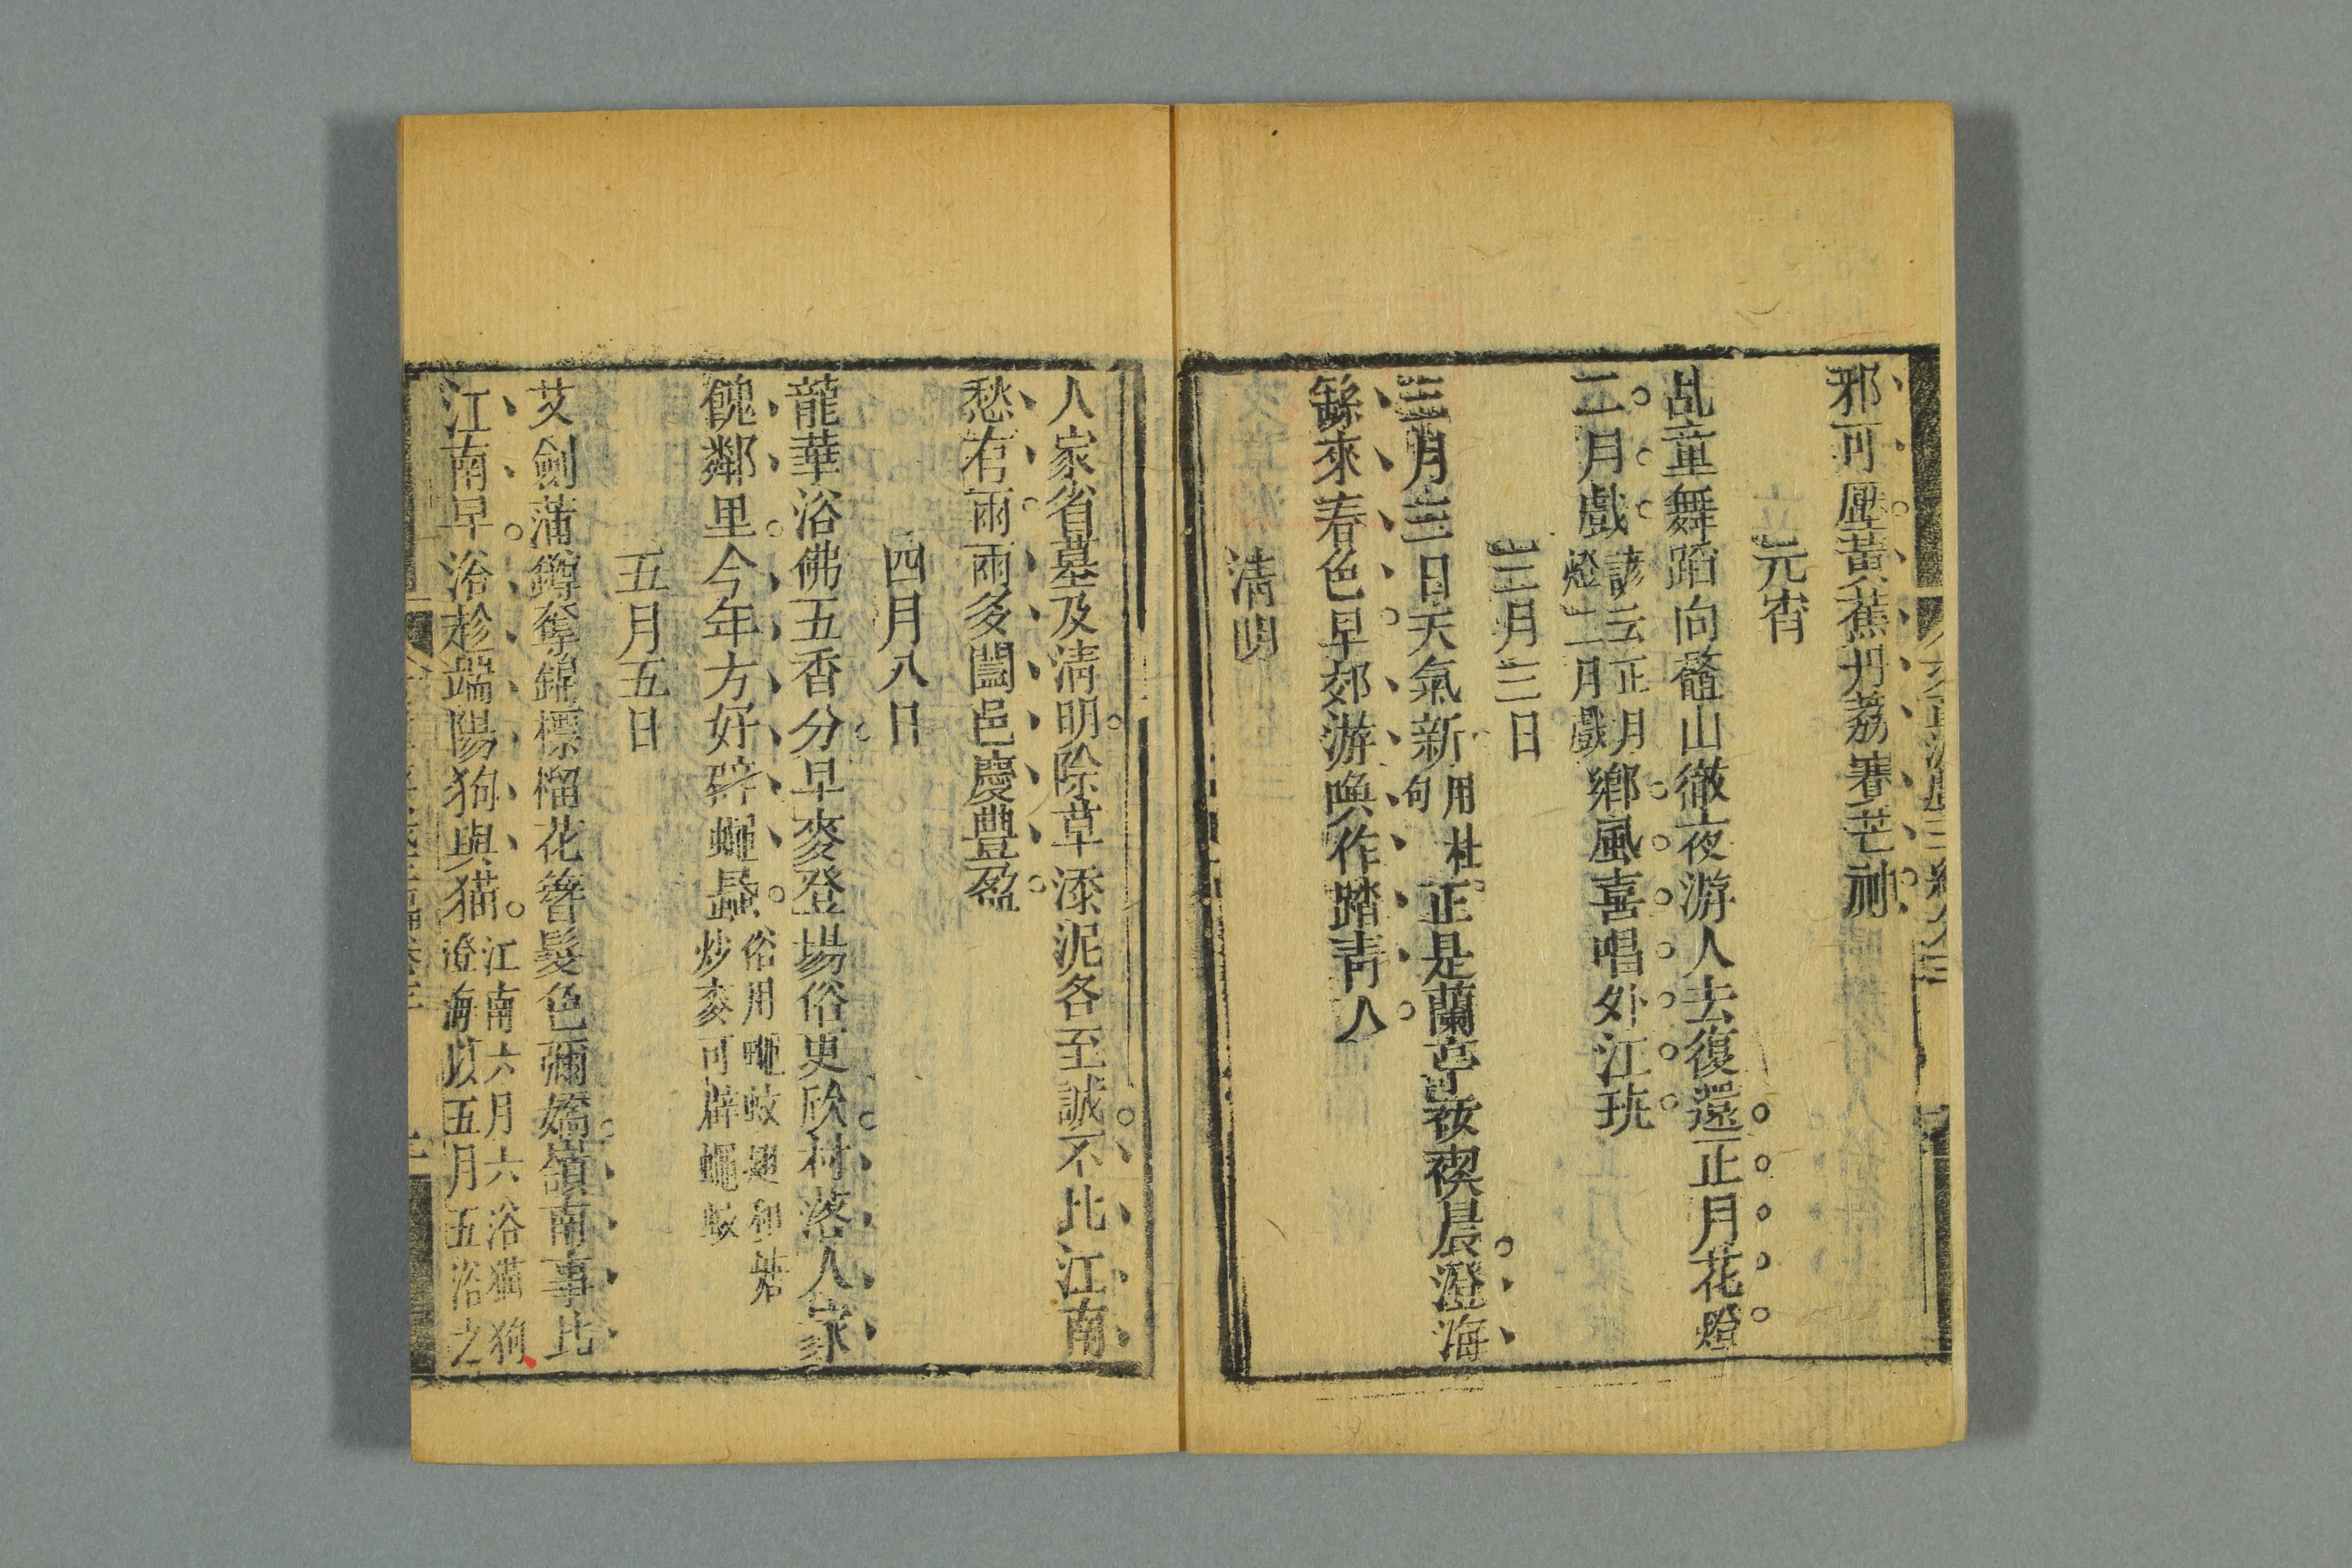 邪可壓黃蕉丹荔賽芒神
元宵
乩童舞蹈向鼇山徹夜游人去復還正月花燈
二月戲諺云正月燈二月戲鄉風喜唱外江班
三月三日
三月三日天氣新用杜句正是蘭亭祓禊晨澄海
餘來春色早郊游喚作踏青人
清明
人家省墓及清明除草添泥各至誠不比江南
愁有雨雨多闔邑慶豐盈
四月八日
龍華浴佛五香分早麥登場俗更欣村落人家
餽鄰里今年方好辟蠅蟁俗用蠅蚊翅和姑炒麥可辟蠅蚊
五月五日
艾劍蒲鐏奪錦標榴花簪髮色彌嬌嶺南事比
江南早浴趁端陽狗與猫江南六月六浴猫狗澄海以五月五浴之